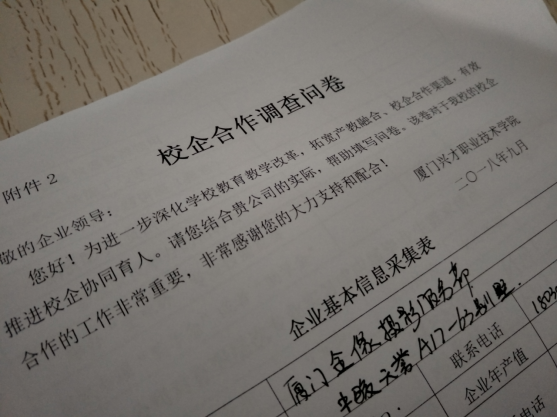 附件 2
校企合作调查问卷
敬的企业领导：
您好！为进一步深化学校教育教学改革，拓宽产教融合、校企合作渠道，有效
推进校企协同育人。请您结合贵公司的实际，帮助填写问卷、该卷对于我校的校企
合作的工作非常重要，非常感谢您的大力支持和配合！
厦门兴才职业技术学院
二〇一八年九月
企业基本信息采集表
厦门金 摄影服务部
A17-63
联系电话 180
企业年产值
电话